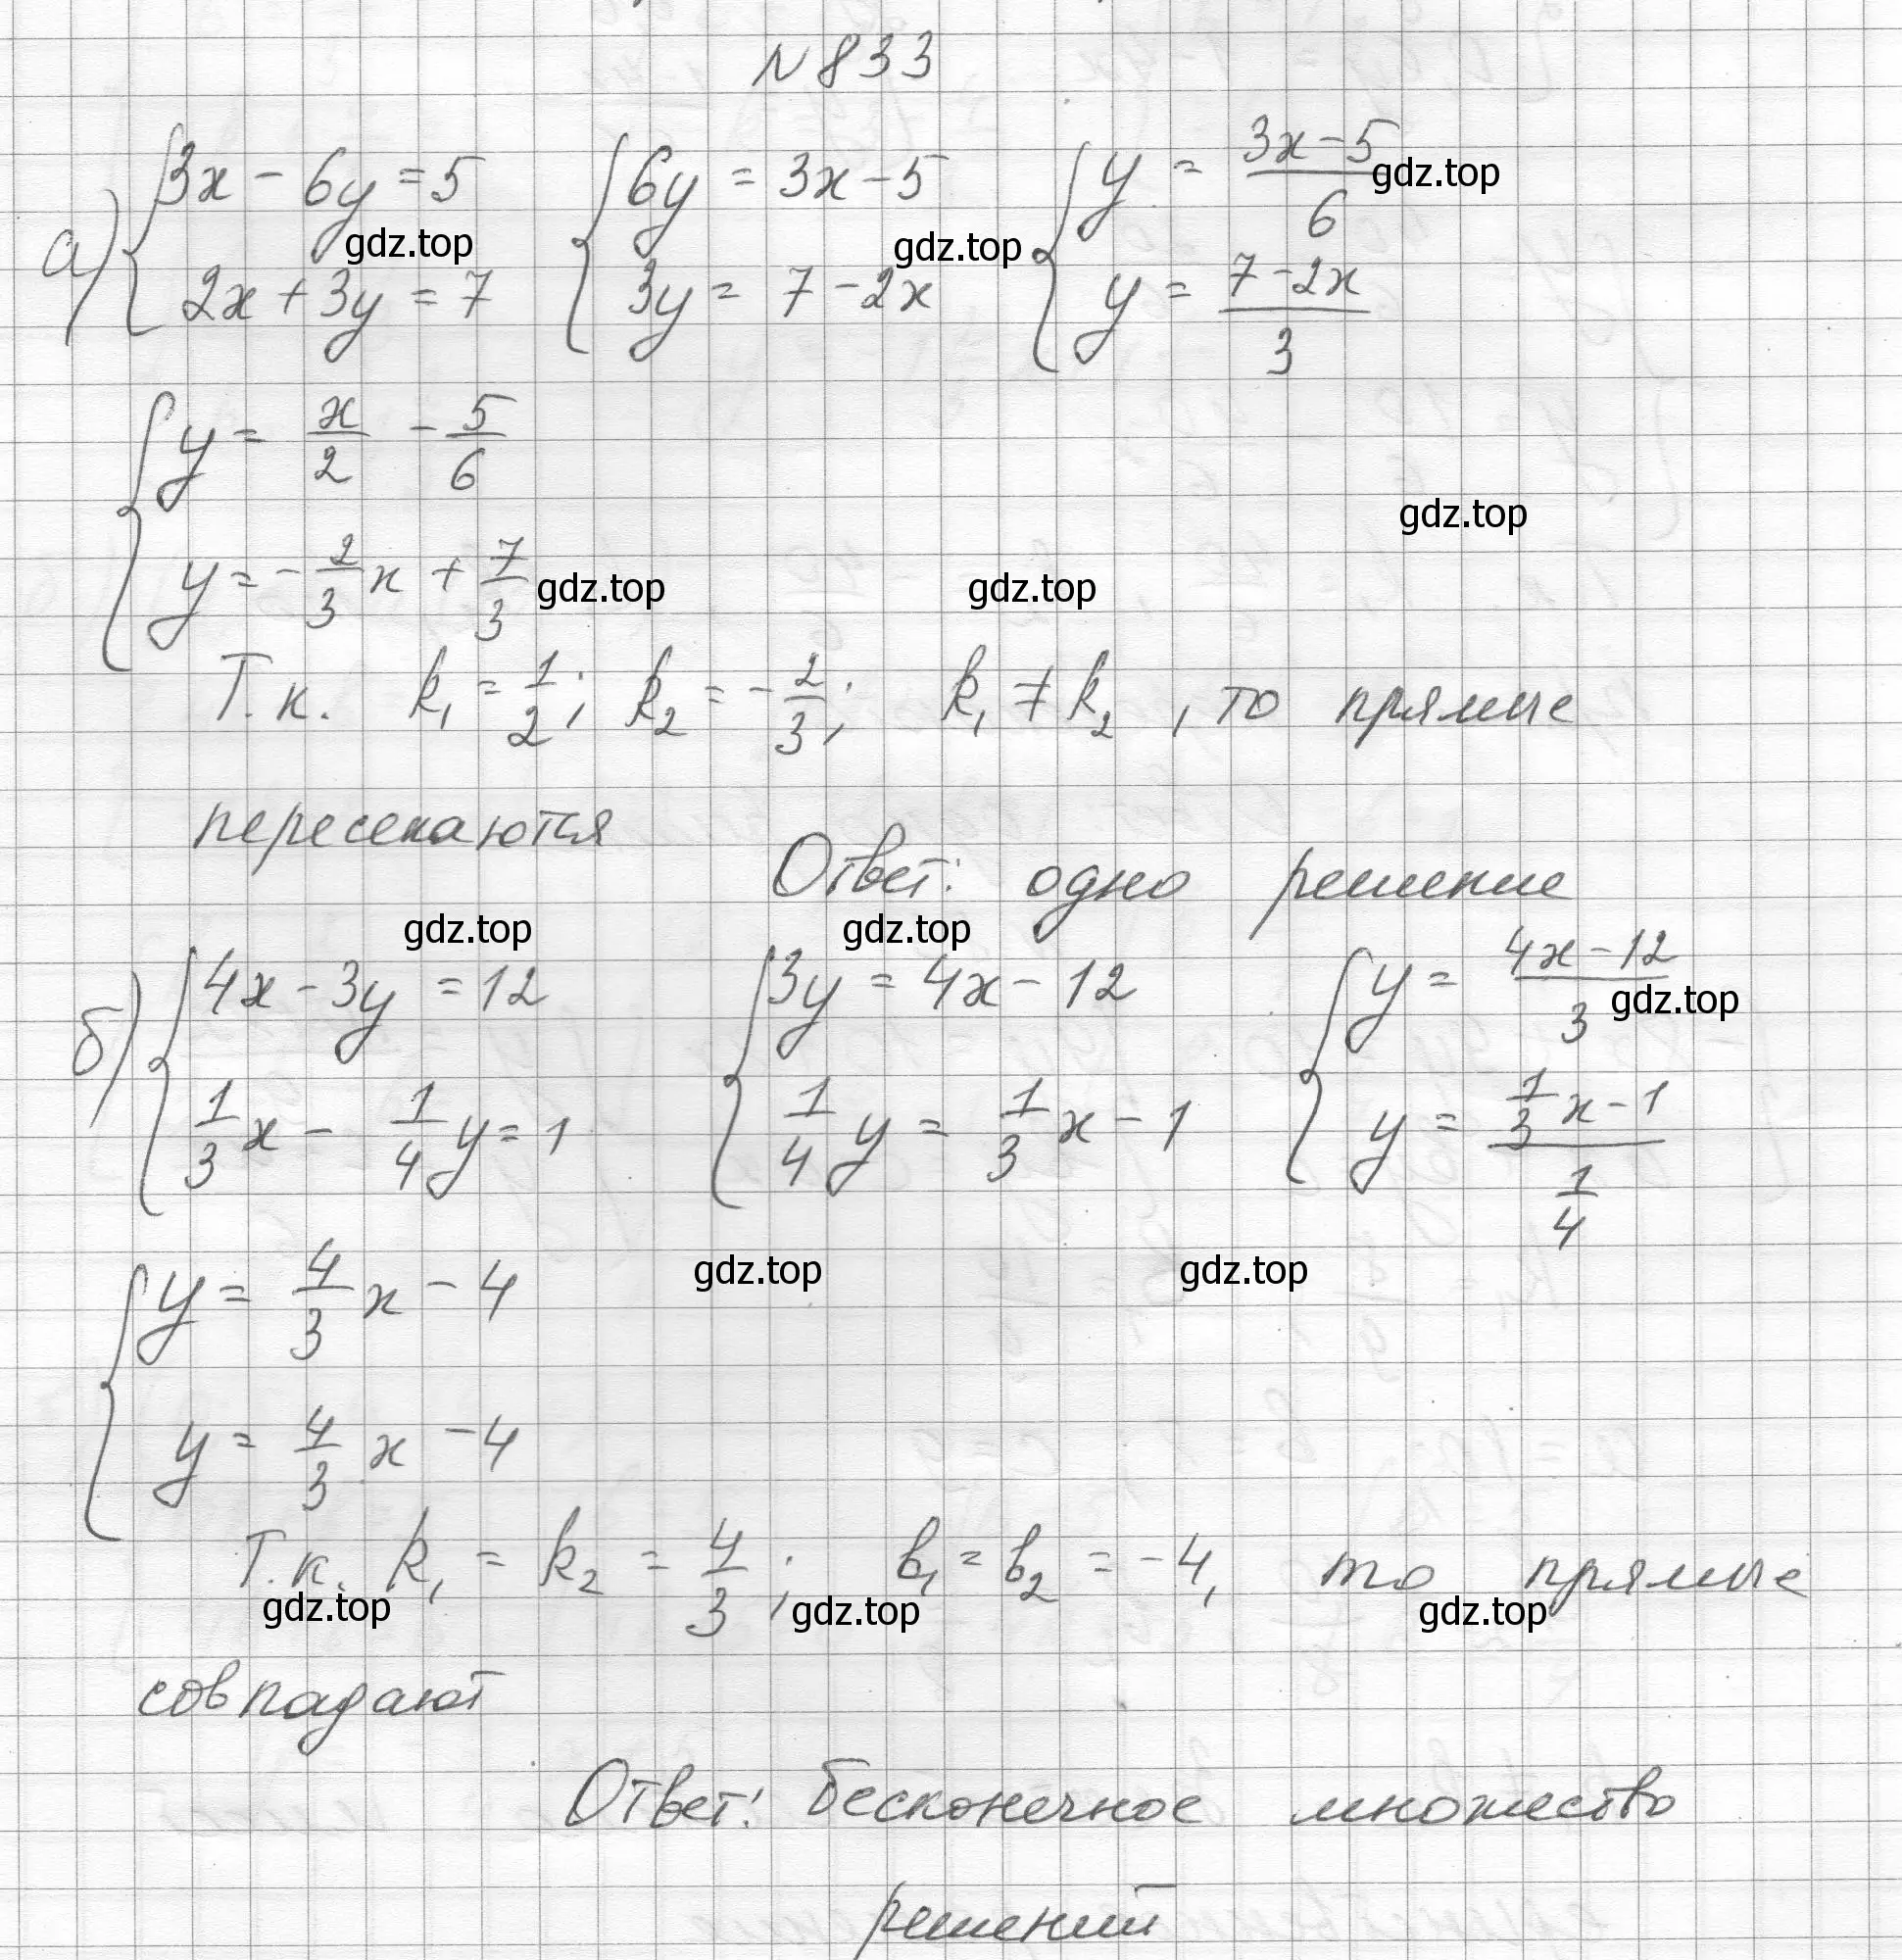 N 833
а) { 3x - 6y = 5   { 6y = 3x - 5   { y = (3x - 5)/6
{ 2x + 3y = 7   { 3y = 7 - 2x   { y = (7 - 2x)/3
{ y = x/2 - 5/6
{ y = - 2/3 x + 7/3
Т.к. k₁ = 1/2; k₂ = - 2/3; k₁ ≠ k₂, то прямые
пересекаются
Ответ: одно решение
б) { 4x - 3y = 12   { 3y = 4x - 12   { y = (4x - 12)/3
{ 1/3 x - 1/4 y = 1   { 1/4 y = 1/3 x - 1   { y = (1/3 x - 1)/(1/4)
{ y = 4/3 x - 4
{ y = 4/3 x - 4
Т.к. k₁ = k₂ = 4/3; b₁ = b₂ = -4, то прямые
совпадают
Ответ: бесконечное множество
решений
gdz.top
gdz.top
gdz.top
gdz.top
gdz.top
gdz.top
gdz.top
gdz.top
gdz.top
gdz.top
gdz.top
gdz.top
gdz.top
gdz.top